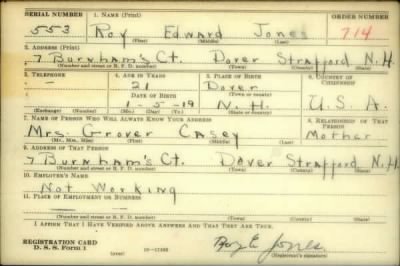 SERIAL NUMBER 1. NAME (Print) ORDER NUMBER
553 Roy Edward Jones 714
(First) (Middle) (Last)
2. ADDRESS (Print)
7 Burnham's Ct. Dover Strafford N.H.
(Number and street or R. F. D. number) (Town) (County) (State)
3. TELEPHONE 4. AGE IN YEARS 5. PLACE OF BIRTH 6. COUNTRY OF CITIZENSHIP
- 21 Dover
DATE OF BIRTH (Town or county)
1-5-19 N.H. U.S.A.
(Exchange) (Number) (Mo.) (Day) (Yr.) (State or country)
7. NAME OF PERSON WHO WILL ALWAYS KNOW YOUR ADDRESS 8. RELATIONSHIP OF THAT PERSON
Mrs. Grover Casey Mother
(Mr., Mrs., Miss) (First) (Middle) (Last)
9. ADDRESS OF THAT PERSON
7 Burnham's Ct. Dover Strafford N.H.
(Number and street or R. F. D. number) (Town) (County) (State)
10. EMPLOYER'S NAME
Not Working
11. PLACE OF EMPLOYMENT OR BUSINESS
-
(Number and street or R. F. D. number) (Town) (County) (State)
I AFFIRM THAT I HAVE VERIFIED ABOVE ANSWERS AND THAT THEY ARE TRUE.
REGISTRATION CARD
D. S. S. Form 1 (over) Roy E. Jones
(Registrant's signature)